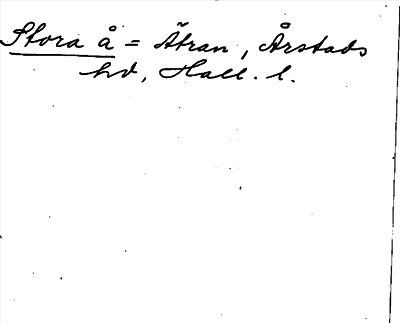 Stora å = Ätran, Årstads
hd, Hall. l.